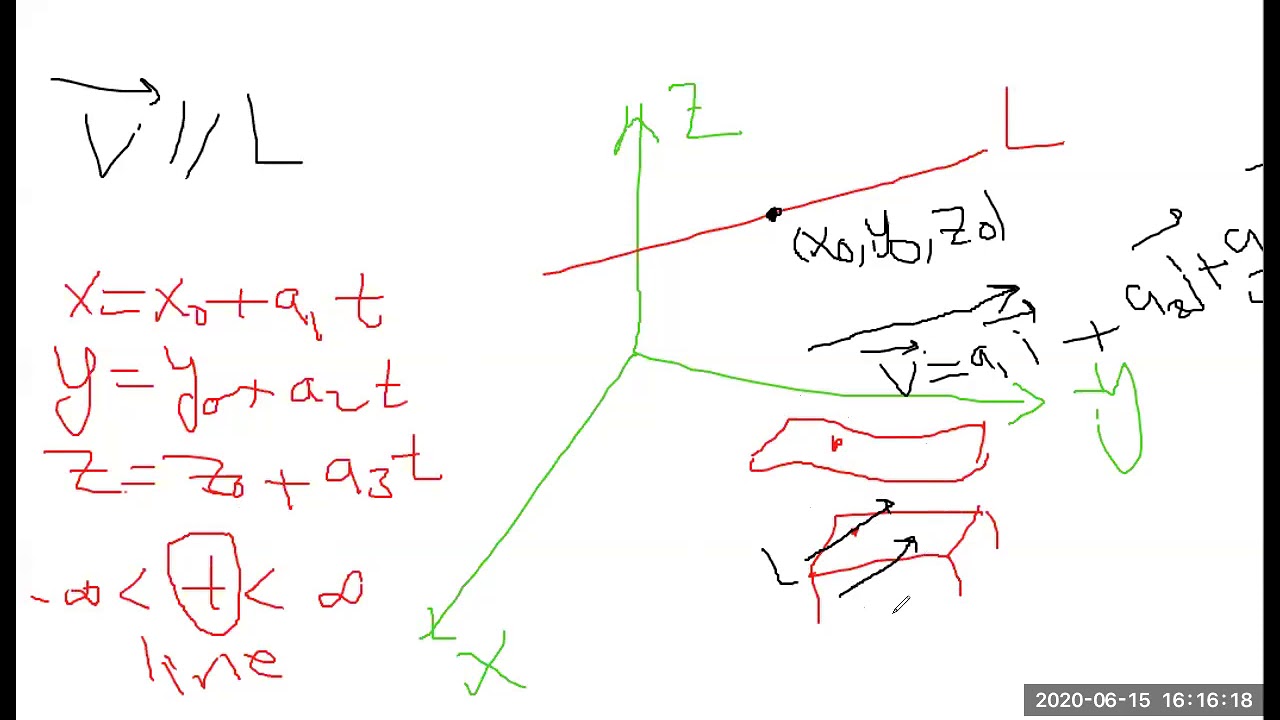 v⃗ // L
x = x₀ + a₁ t
y = y₀ + a₂ t
z = z₀ + a₃ t
-∞ < t < ∞
line
Z
L
(x₀, y₀, z₀)
v⃗ = a₁ i⃗ + a₂ j⃗ +
y
L
X
2020-06-15 16:16:18